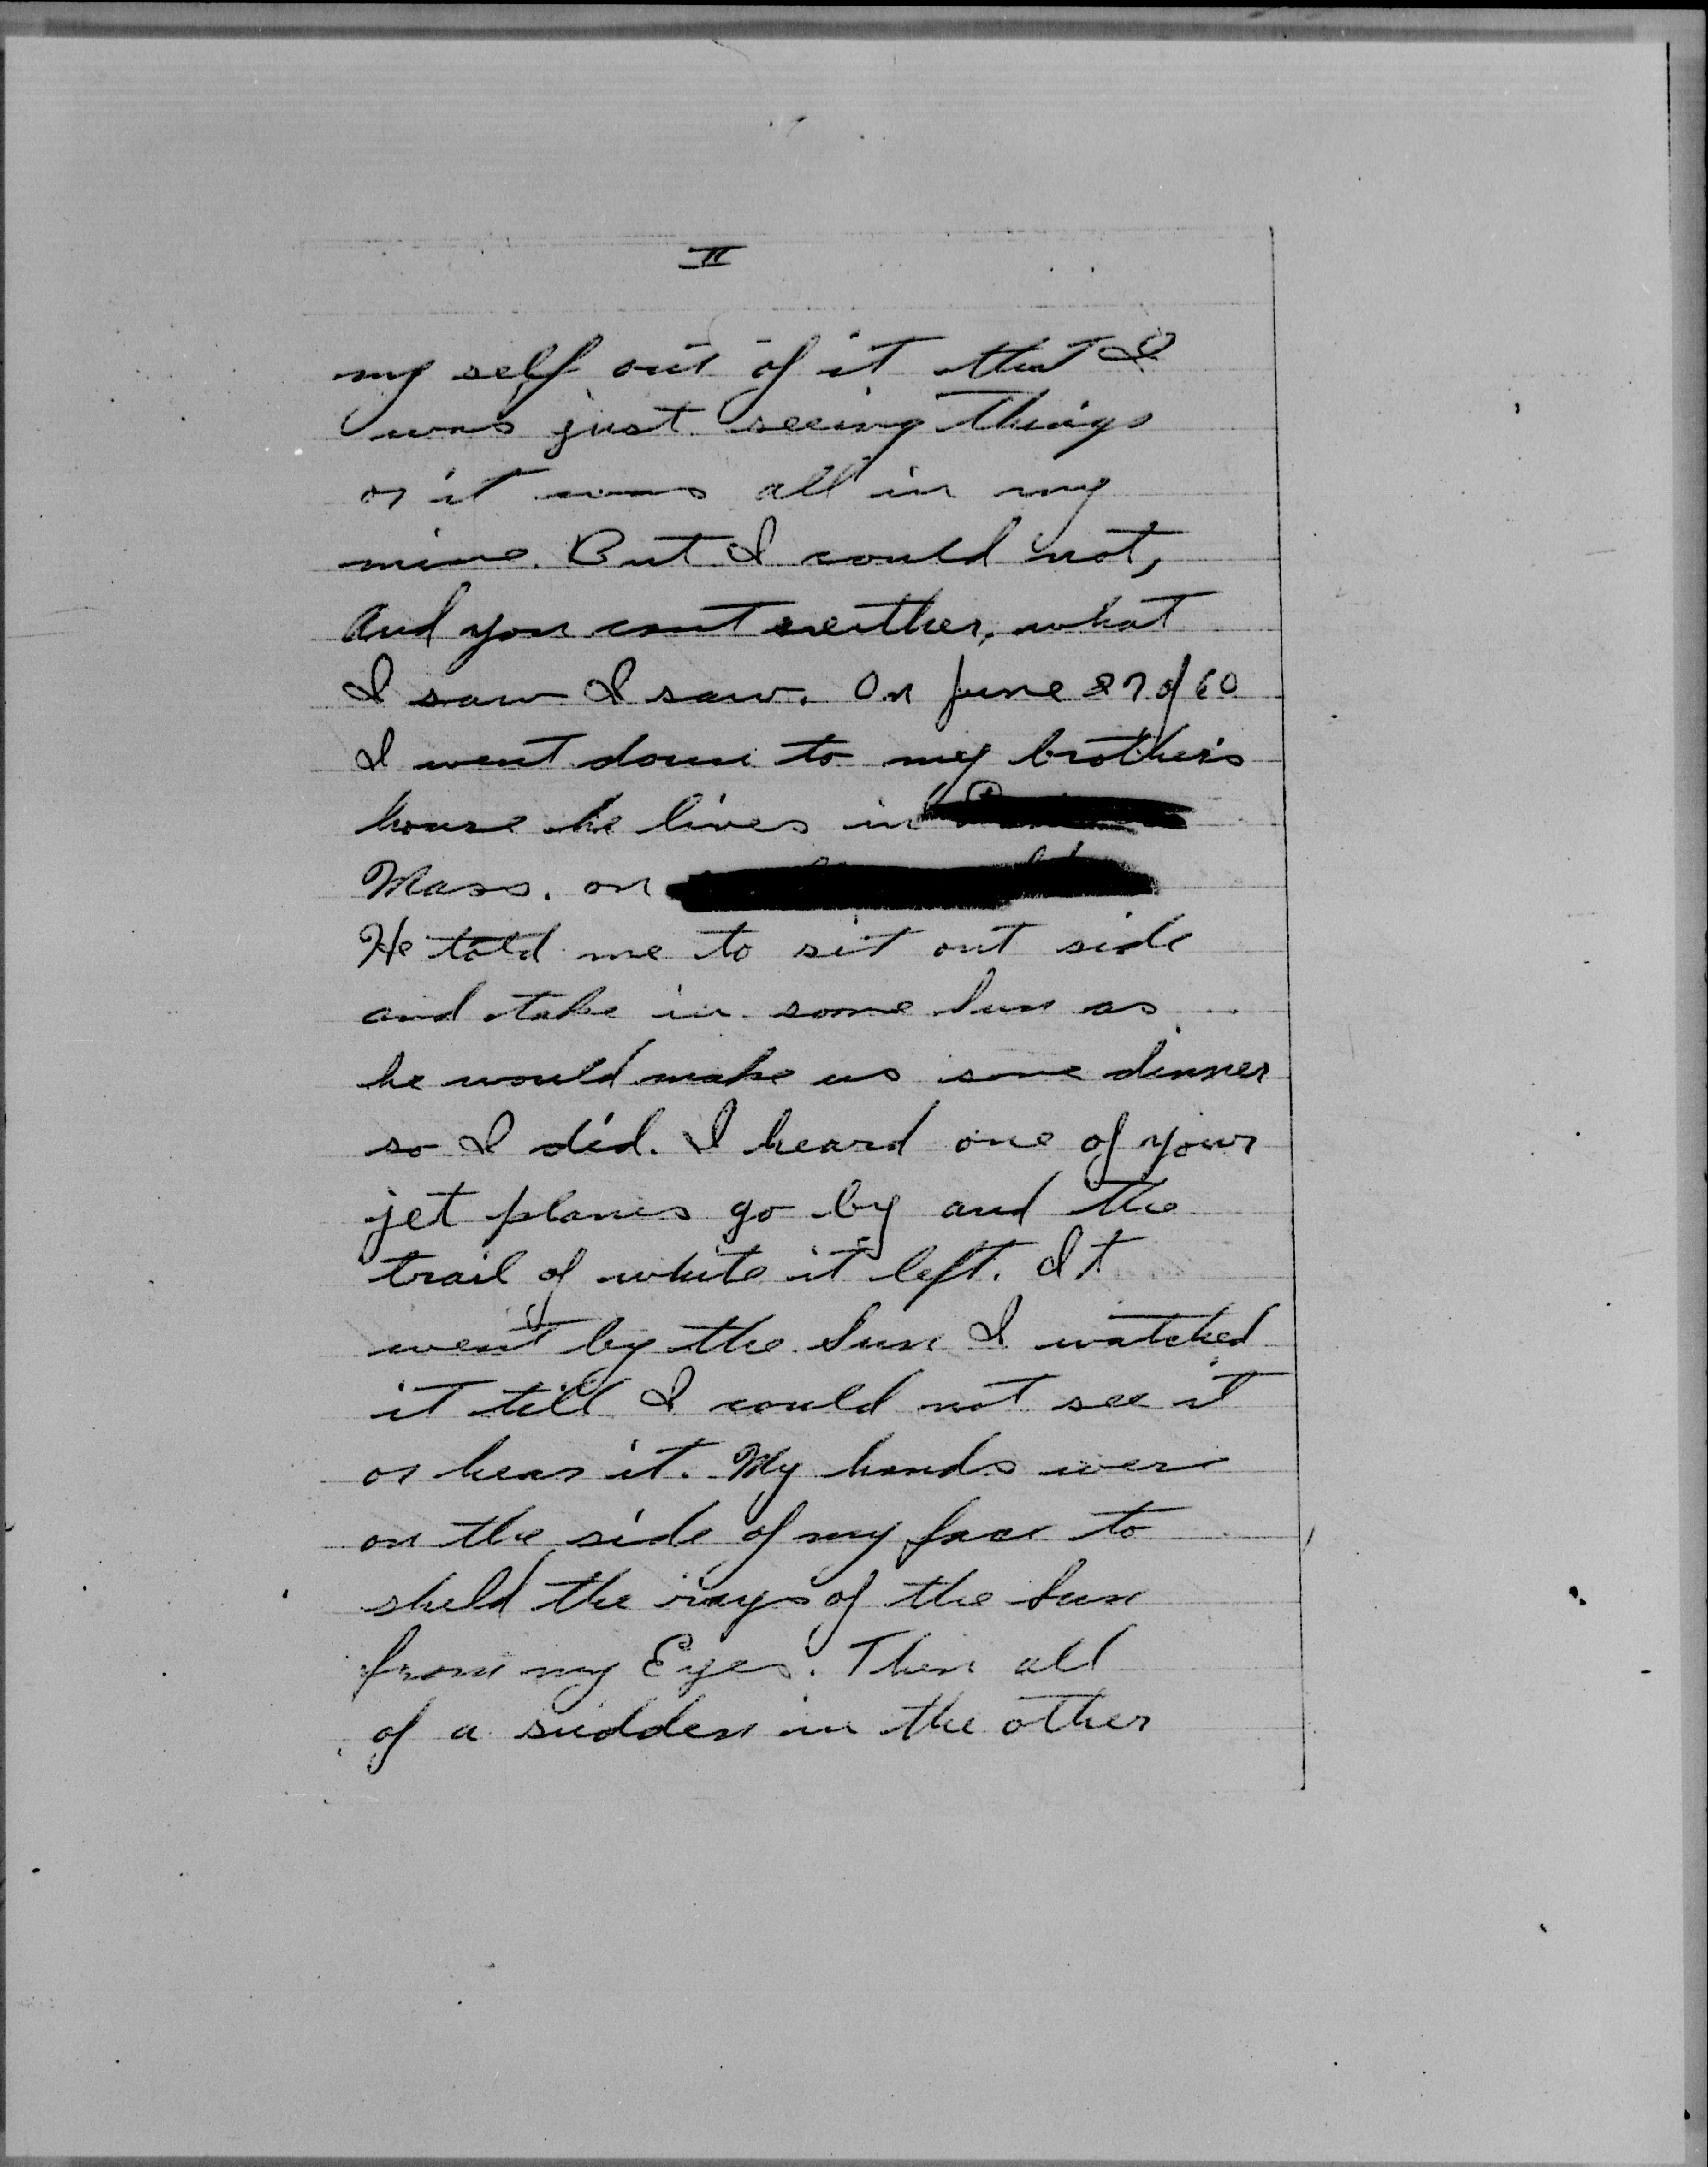 II
my self out of it that I
was just seeing things
or it was all in my
mine. But I could not,
and you cant neither, what
I saw I saw. On June 27 of 60
I went down to my brother's
house he lives in
Mass. on
He told me to sit out side
and take in some Sun as
he would make us some dinner
so I did. I heard one of your
jet planes go by and the
trail of white it left. It
went by the Sun I watched
it till I could not see it
or hear it. My hands were
on the side of my face to
sheld the rays of the Sun
from my Eyes. Then all
of a sudden in the other